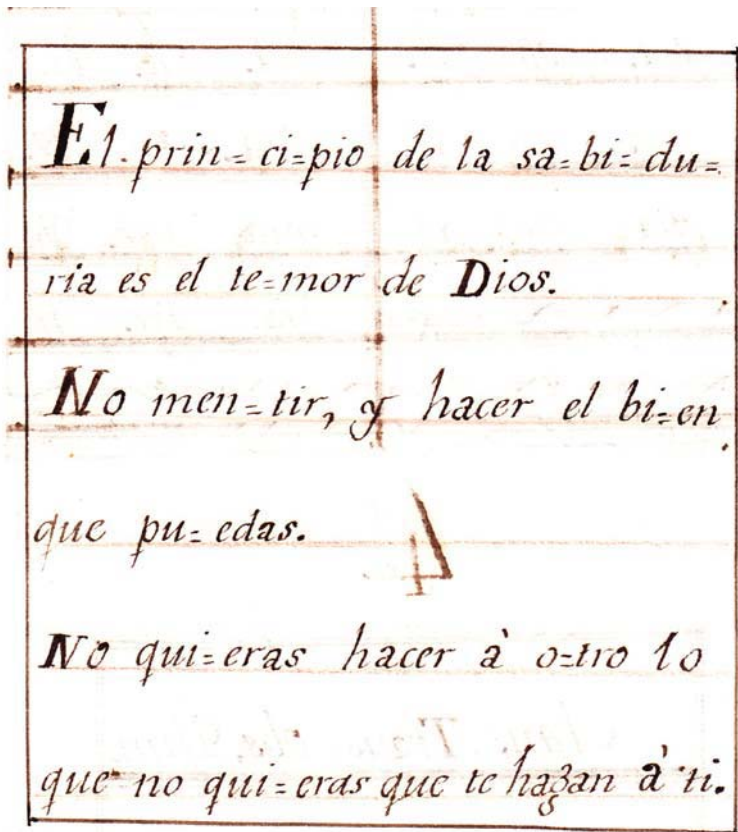 El prin= ci=pio de la sa=bi=du=
ria es el te=mor de Dios.
No men=tir, y hacer el bi=en
que pu=edas.
No qui=eras hacer à o=tro lo
que no qui=eras que te hagan à ti.